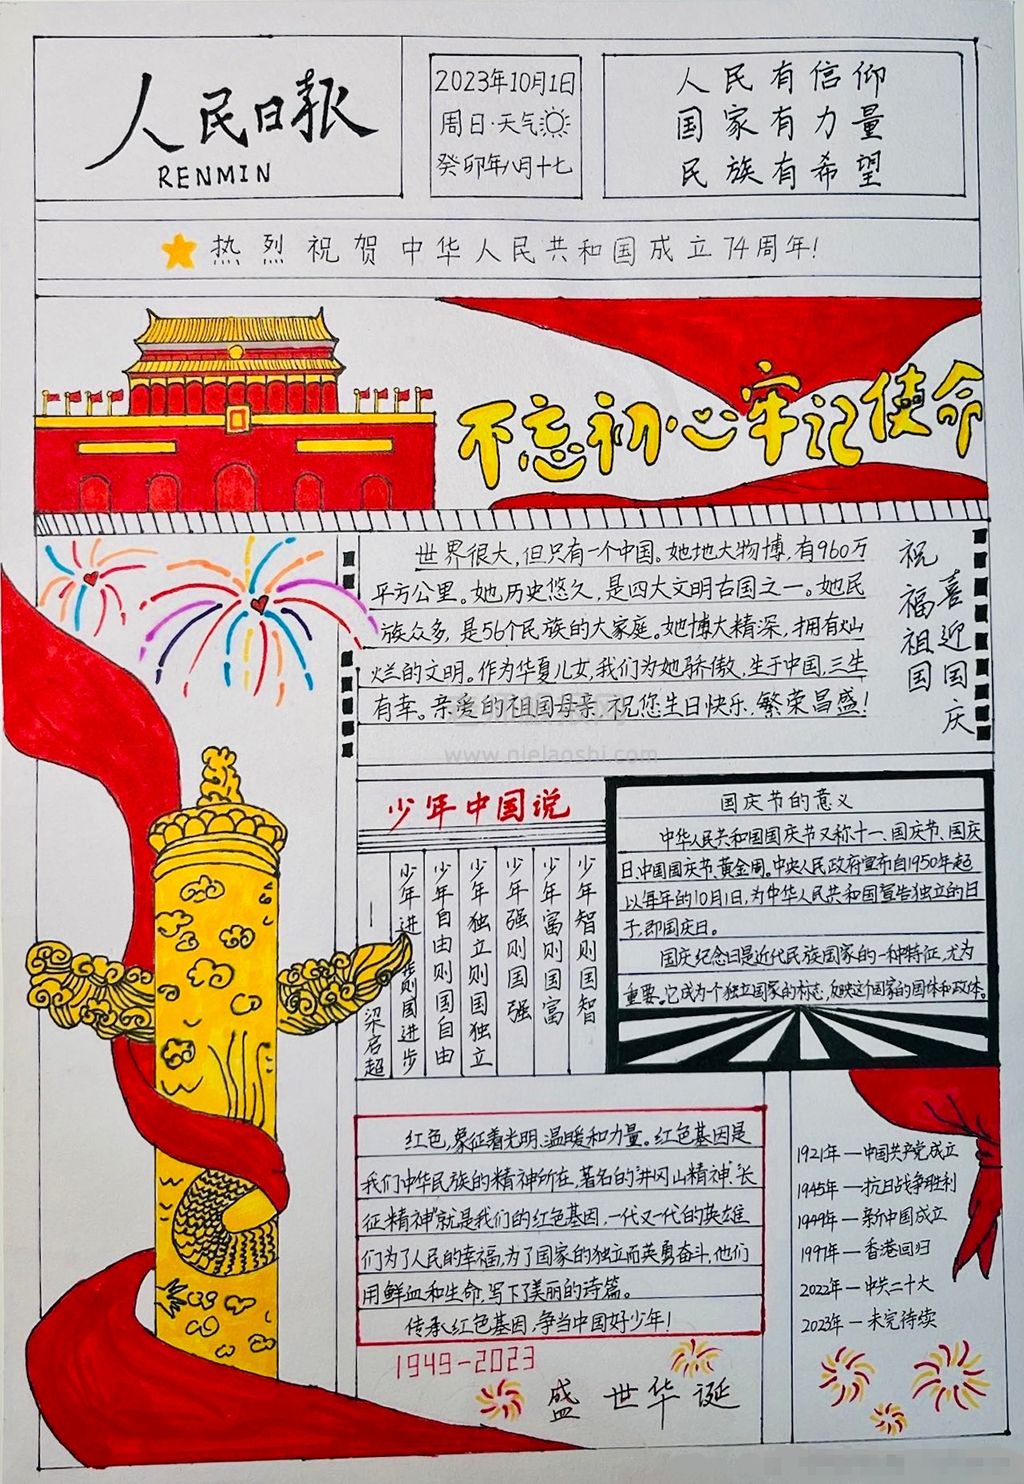 人民日报
RENMIN
2023年10月1日
周日·天气
癸卯年八月十七
人民有信仰
国家有力量
民族有希望
热烈祝贺中华人民共和国成立74周年!
不忘初心牢记使命
世界很大,但只有一个中国。她地大物博,有960万
平方公里。她历史悠久,是四大文明古国之一。她民
族众多,是56个民族的大家庭。她博大精深,拥有灿
烂的文明。作为华夏儿女,我们为她骄傲,生于中国,三生
有幸。亲爱的祖国母亲,祝您生日快乐,繁荣昌盛!
喜迎国庆
祝福祖国
www.nielaoshi.com
少年中国说
少年智则国智
少年富则国富
少年强则国强
少年独立则国独立
少年自由则国自由
少年进步则国进步
——梁启超
国庆节的意义
中华人民共和国国庆节又称十一、国庆节、国庆
日、中国国庆节、黄金周。中央人民政府宣布自1950年起
以每年的10月1日,为中华人民共和国宣告独立的日
于,即国庆日。
国庆纪念日是近代民族国家的一种特征,尤为
重要。它成为个独立国家的标志,反映这个国家的国体和政体。
红色,象征着光明、温暖和力量。红色基因是
我们中华民族的精神所在,著名的"井冈山精神"、"长
征精神"就是我们的红色基因,一代又一代的英雄
们为了人民的幸福,为了国家的独立而英勇奋斗,他们
用鲜血和生命,写下了美丽的诗篇。
传承红色基因,争当中国好少年!
1949-2023
盛世华诞
1921年—中国共产党成立
1945年—抗日战争胜利
1949年—新中国成立
1997年—香港回归
2022年—中共二十大
2023年—未完待续